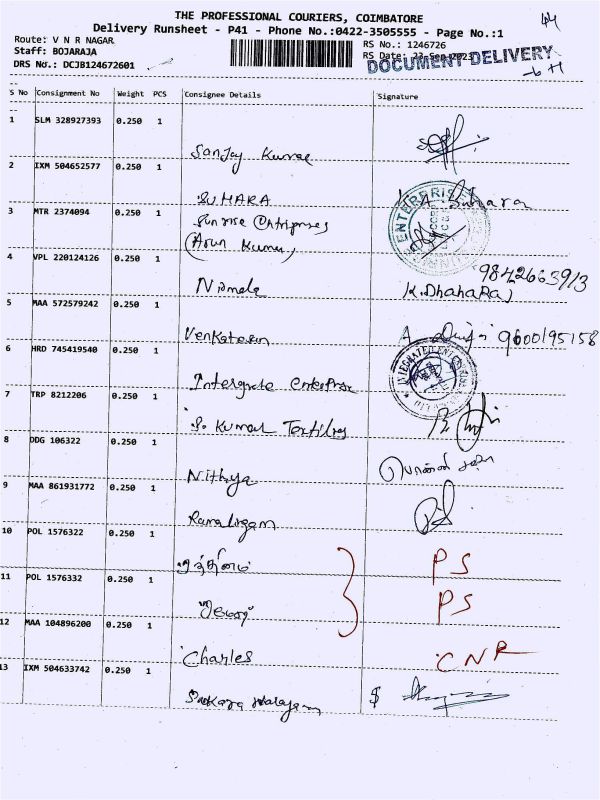 THE PROFESSIONAL COURIERS, COIMBATORE
Delivery Runsheet - P41 - Phone No.:0422-3505555 - Page No.:1
Route: V N R NAGAR
RS No.: 1246726
Staff: BOJARAJA
RS Date:
DRS No.: DCJB124672601
DOCUMENT DELIVERY
S No Consignment No Weight PCS Consignee Details Signature
1 SLM 328927393 0.250 1
Sanjay Kumar
2 IXM 504652577 0.250 1
SUHARA
3 MTR 2374094 0.250 1
Sunrise Entriprises
(Arun Kumar)
ENTERPRIS
4 VPL 220124126 0.250 1
Nirmala K.Dhanaraj 9842663913
5 MAA 572579242 0.250 1
Venkatesan 9600195158
6 HRD 745419540 0.250 1
Intergrate Enterprise
INTEGRATED ENTERPRISES
7 TRP 8212206 0.250 1
S. Kumar Textiles
8 DDG 106322 0.250 1
Nithya
9 MAA 861931772 0.250 1
Ramalingam
10 POL 1576322 0.250 1
PS
11 POL 1576332 0.250 1
PS
12 MAA 104896200 0.250 1
Charles CNR
13 IXM 504633742 0.250 1